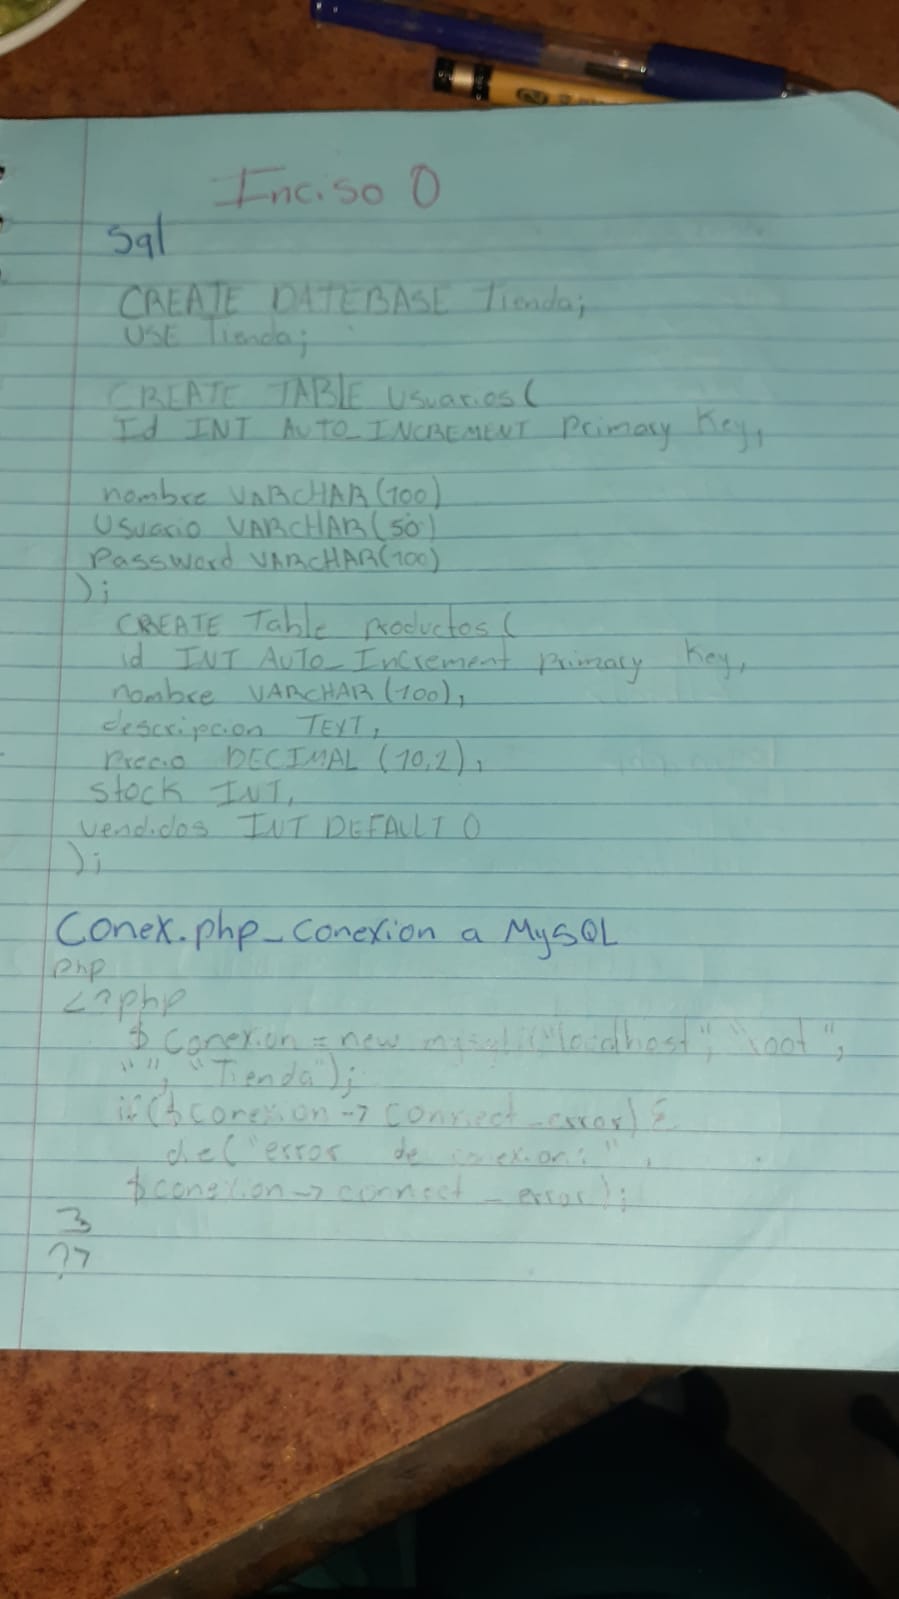 Inciso 0
Sql
CREATE DATEBASE Tienda;
USE Tienda;
CREATE TABLE Usuarios(
Id INT AUTO_INCREMENT Primary Key,
nombre VARCHAR(100)
Usuario VARCHAR(50)
Password VARCHAR(100)
);
CREATE Table productos(
id INT AUTO_Increment primary key,
nombre VARCHAR(100),
descripcion TEXT,
Precio DECIMAL (10,2),
stock INT,
vendidos INT DEFAULT 0
);
Conex.php_Conexion a MySQL
php
<?php
$ Conexion = new mysqli("localhost", "root",
"", "Tienda");
if($conexion -> connect_error){
die("error de conexion:" .
$conexion -> connect_error);
}
?>